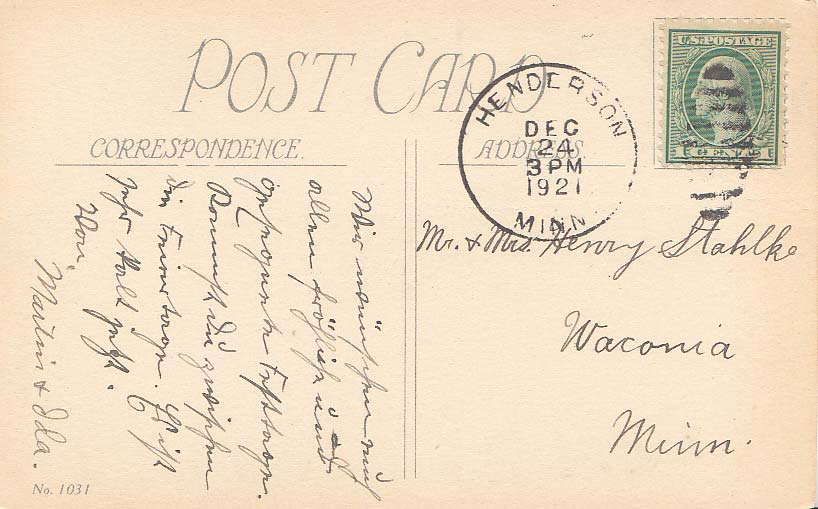 POST CARD
CORRESPONDENCE.
ADDRESS
HENDERSON
DEC
24
3 PM
1921
MINN.
U.S. POSTAGE
Mr. & Mrs. Henry Stahlke
Waconia
Minn.
Wir wünschen euch
allen fröhliche und
gesegnete Festtage.
Kommst du zwischen
die Feiertage. Es ist
sehr kalt jetzt.
Von,
Martin & Ida.
No. 1031